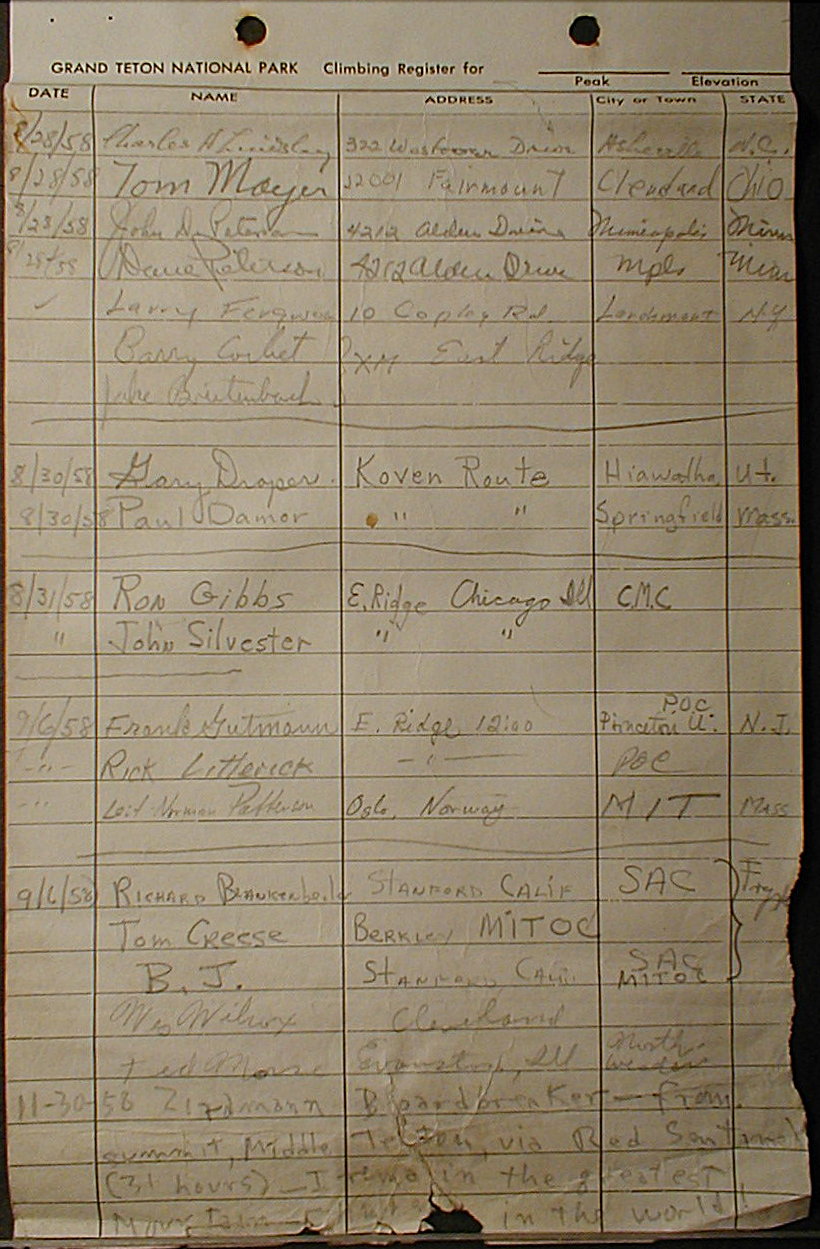 GRAND TETON NATIONAL PARK Climbing Register for
Peak Elevation
DATE NAME ADDRESS City or Town STATE
8/28/58 Charles H Lindsley 322 Drive Asheville N.C.
8/28/58 Tom Mayer 12001 Fairmount Cleveland Ohio
8/28/58 John D. Peterson 4212 Alden Drive Minneapolis Minn
8/28/58 Dave Peterson 4212 Alden Drive Mpls Minn
✓ Larry Ferguson 10 Copley Rd. Larchmont N.Y
Barry Corbet } XM East Ridge
Jake Breitenbach
8/30/58 Gary Draper. Koven Route Hiawatha, Ut.
8/30/58 Paul Damor " " Springfield Mass.
8/31/58 Ron Gibbs E. Ridge Chicago Ill C.M.C
" John Silvester " "
9/6/58 Frank Gutmann E. Ridge 12:00 P.O.C Princeton U. N.J.
-"- Rick Litterick - " - POC
-"- Leif-Norman Patterson Oslo, Norway MIT Mass
9/6/58 Richard Stanford Calif SAC
Tom Creese Berkley MITOC
B. J. Stanford, Calif. SAC MITOC
Wes Wilcox Cleveland
Ted Morse Evanston, Ill North-
11-30-58 Boardbreaker — from
summit, Middle Teton, via Red Sentinel
(31 hours) — I in the greatest
Mountain in the world!